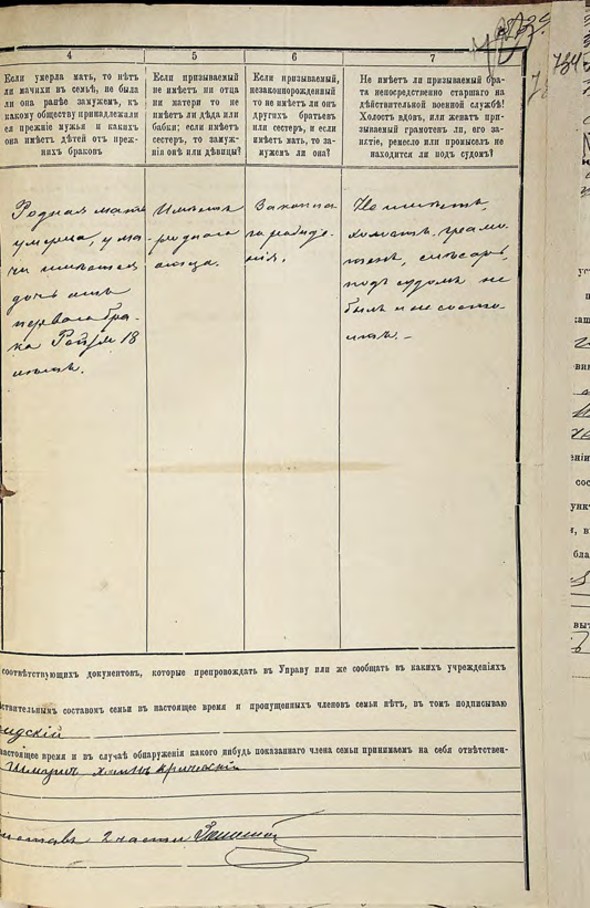 4
Если умерла мать, то нѣтъ
ли мачихи въ семьѣ, не была
ли она ранѣе замужемъ, къ
какому обществу принадлежали
ея прежніе мужья и какихъ
она имѣетъ дѣтей отъ преж-
нихъ браковъ
5
Если призываемый
не имѣетъ ни отца
ни матери то не
имѣетъ ли дѣда или
бабки; если имѣетъ
сестеръ, то замуж-
нія онѣ или дѣвицы?
6
Если призываемый,
незаконнорожденный
то не имѣетъ ли онъ
другихъ братьевъ
или сестеръ, и если
имѣетъ мать, то за-
мужемъ ли она?
7
Не имѣетъ ли призываемый бра-
та непосредственно старшаго на
дѣйствительной военной службѣ!
Холостъ вдовъ, или женатъ при-
зываемый грамотенъ ли, его за-
нятіе, ремесло или промыселъ не
находится ли подъ судомъ?
Родная мать
умерла, у ма-
чи имѣется
дочь отъ
перваго бра-
ка 18
лѣтъ.
Имѣетъ
роднаго
отца.
Законна
го рожде-
нія.
Не имѣетъ,
холостъ, грамо-
тенъ, слесарь,
подъ судомъ не
былъ и не состо-
итъ. –
соотвѣтствующихъ документовъ, которые препровождать въ Управу или же сообщать въ какихъ учрежденіяхъ
ствительнымъ составомъ семьи въ настоящее время и пропущенныхъ членовъ семьи нѣтъ, въ томъ подписываю
настоящее время и въ случаѣ обнаруженія какого нибудь показаннаго члена семьи принимаемъ на себя отвѣтствен-
2 части